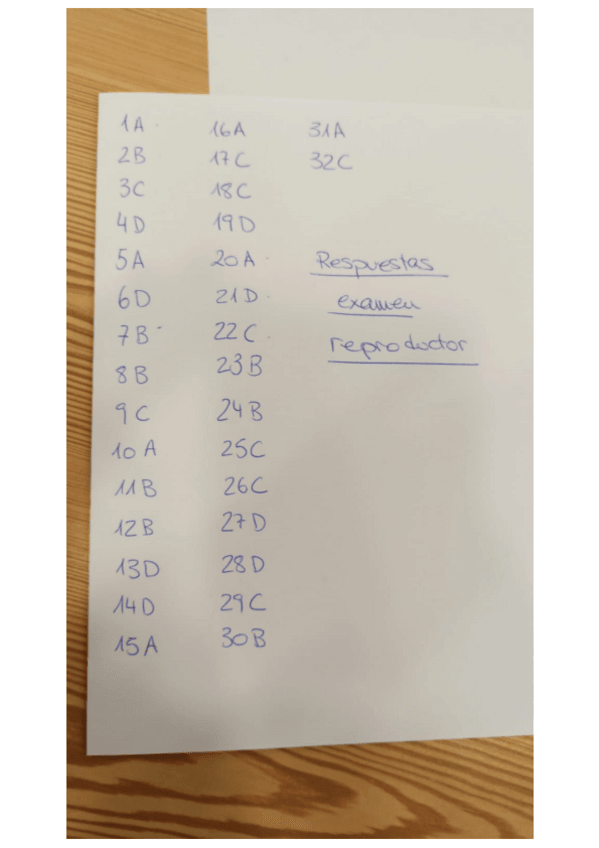 1A
2B
3C
4D
5A
6D
7B
8B
9C
10A
11B
12B
13D
14D
15A
16A
17C
18C
19D
20A
21D
22C
23B
24B
25C
26C
27D
28D
29C
30B
31A
32C
Respuestas
examen
reproductor